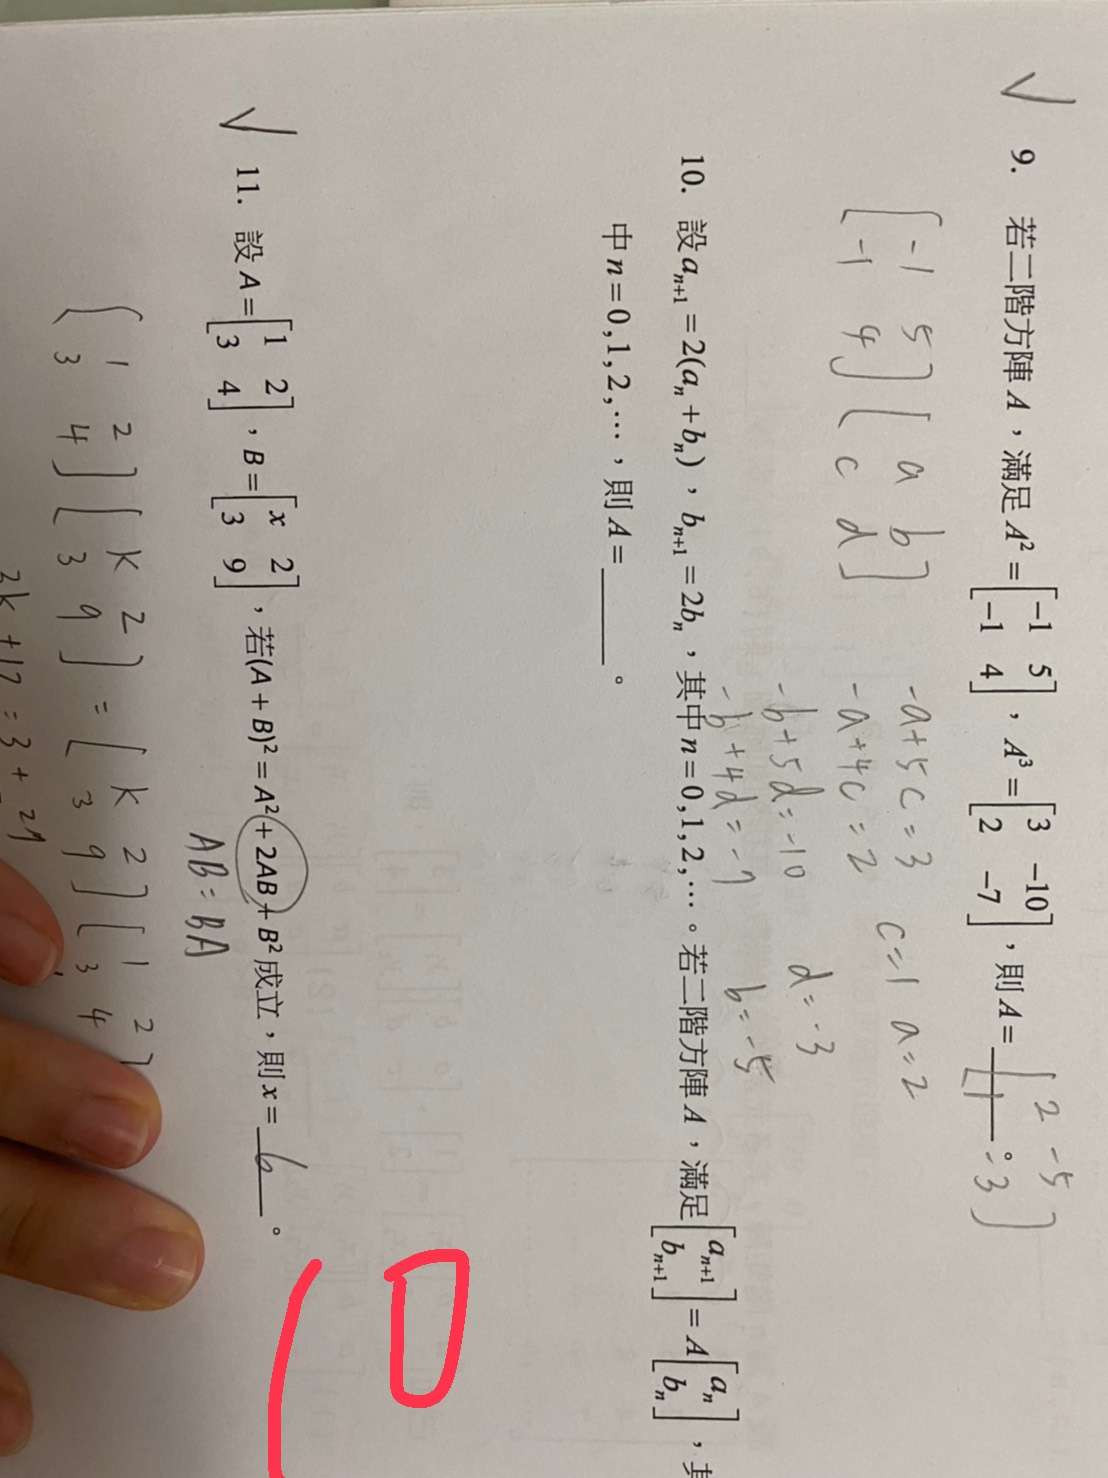 ✓
9. 若二階方陣 A,滿足 A² = [-1 5; -1 4],A³ = [3 -10; 2 -7],則 A = ______。
[2 -5
1 -3]
[-1 5
-1 4] [a b
c d]
-a+5c=3
-a+4c=2
c=1 a=2
-b+5d=-10
-b+4d=-7
d=-3
b=-5
10. 設 aₙ₊₁ = 2(aₙ + bₙ),bₙ₊₁ = 2bₙ,其中 n = 0, 1, 2, ⋯。若二階方陣 A,滿足 [aₙ₊₁; bₙ₊₁] = A [aₙ; bₙ],其
中 n = 0, 1, 2, ⋯,則 A = ______。
✓
11. 設 A = [1 2; 3 4],B = [x 2; 3 9],若 (A + B)² = A² + 2AB + B² 成立,則 x = 6。
AB=BA
[1 2
3 4] [k 2
3 9] = [k 2
3 9] [1 2
3 4]